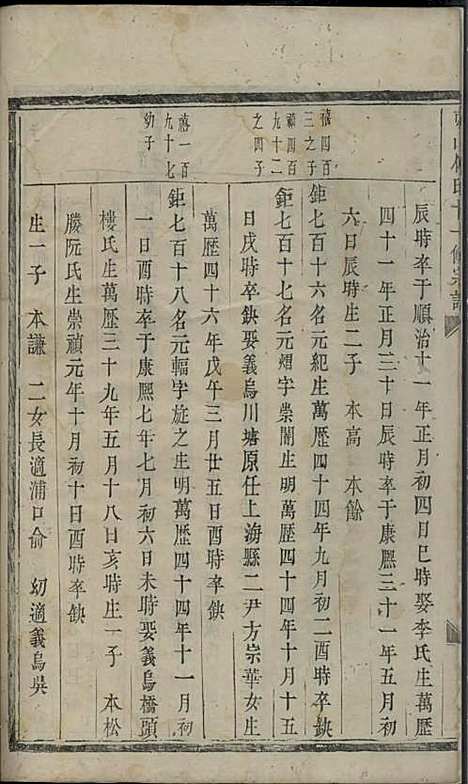 辰時卒于順治十一年正月初四日巳時娶李氏生萬歷
四十一年正月三十日辰時卒于康熙三十一年五月初
六日辰時生二子 本高 本餘
禧四百
三之子
鉅七百十六名元紀生萬歷四十四年九月初二酉時卒缺
禎四百
九十二
之四子
鉅七百十七名元熠字崇闇生明萬歷四十四年十月十五
日戌時卒缺娶義烏川塘原任上海縣二尹方宗華女生
萬歷四十六年戊午三月廿五日酉時卒缺
禧一百
九十七
幼子
鉅七百十八名元輻字旋之生明萬歷四十四年十一月初
一日酉時卒于康熙七年七月初六日未時娶義烏橋頭
樓氏生萬歷三十九年五月十八日亥時生一子 本松
勝阮氏生崇禎元年十月初十日酉時卒缺
生一子 本謙 二女長適浦口俞 幼適義烏吳